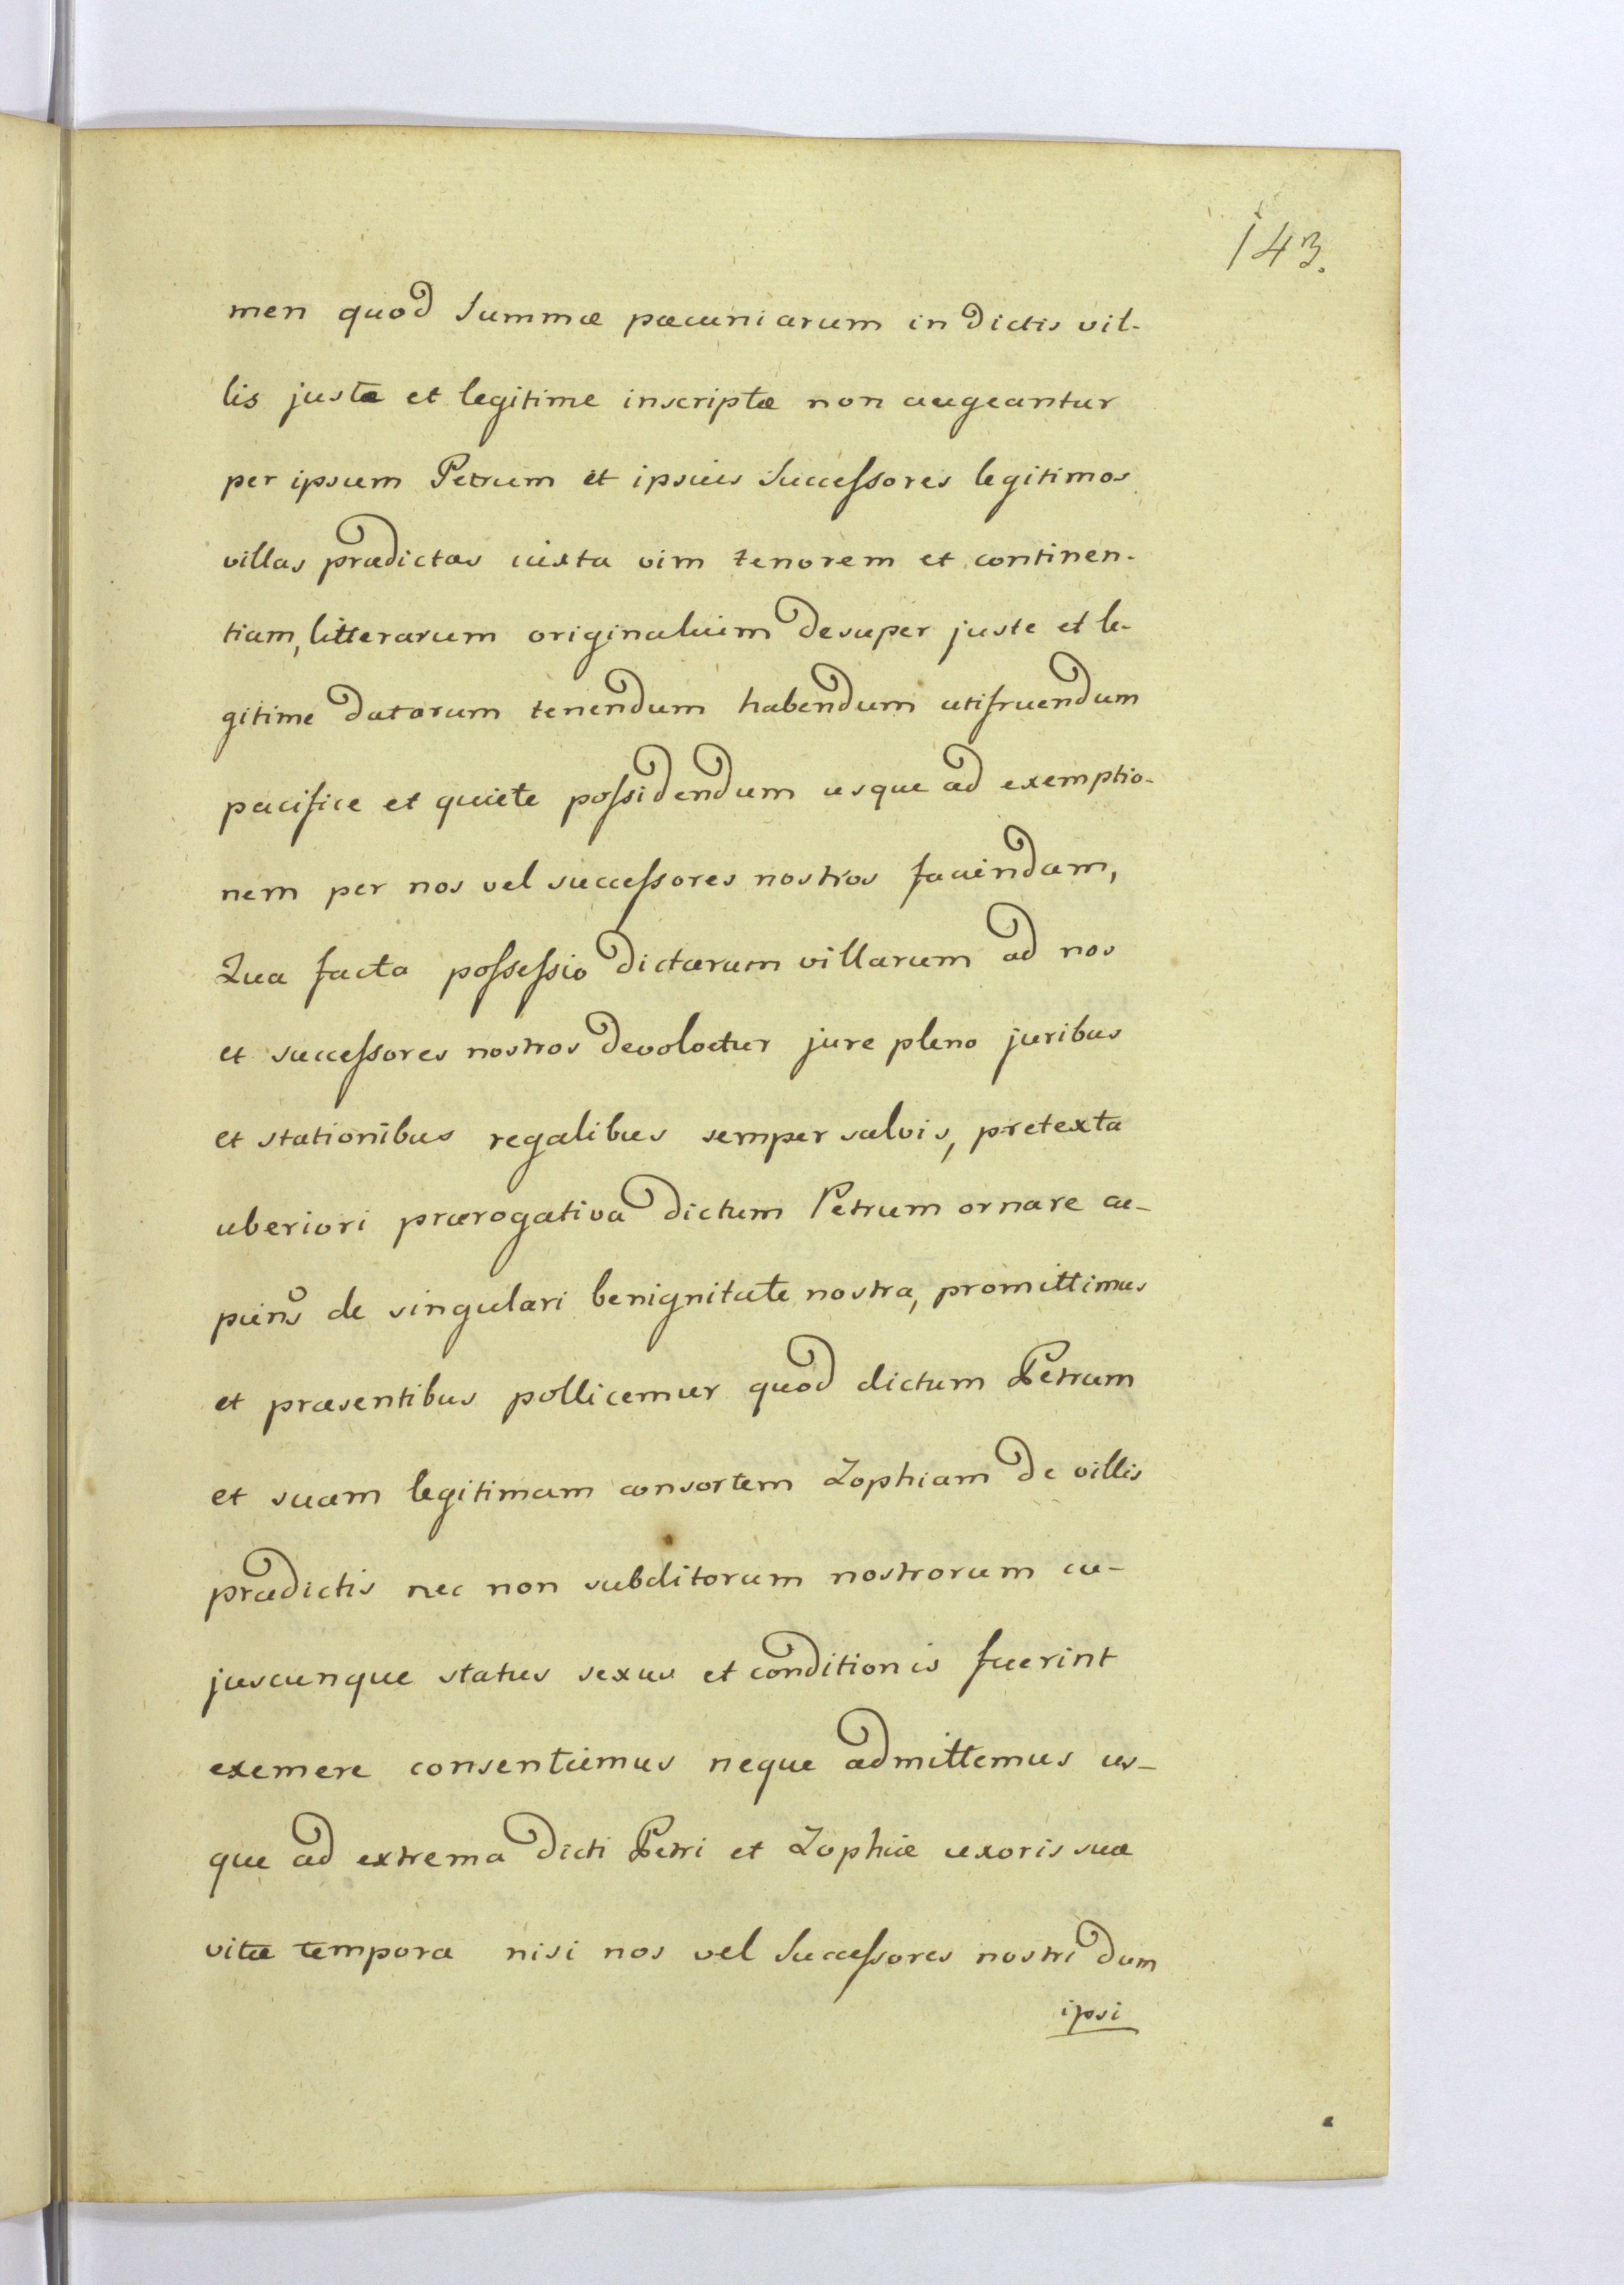 143.
men quod Summæ pæcuniarum in dictis vil-
lis justæ et legitime inscriptæ non augeantur
per ipsum Petrum et ipsius Successores legitimos
villas prædictas iuxta vim tenorem et continen-
tiam, litterarum originalium desuper juste et le-
gitime datarum tenendum habendum utifruendum
pacifice et quiete possidendum usque ad exemptio-
nem per nos vel successores nostros faciendam,
Qua facta possessio dictarum villarum ad nos
et successores nostros devolvetur jure pleno juribus
et stationibus regalibus semper salvis, pretexta
uberiori prærogativa dictum Petrum ornare cu-
piens de singulari benignitate nostra, promittimus
et præsentibus pollicemur quod dictum Petrum
et suam legitimam consortem Zophiam de villis
prædictis nec non subditorum nostrorum cu-
juscunque status sexus et conditionis fuerint
exemere consentiemus neque admittemus us-
que ad extrema dicti Petri et Zophiæ uxoris suæ
vitæ tempora nisi nos vel Successores nostri dum
ipsi